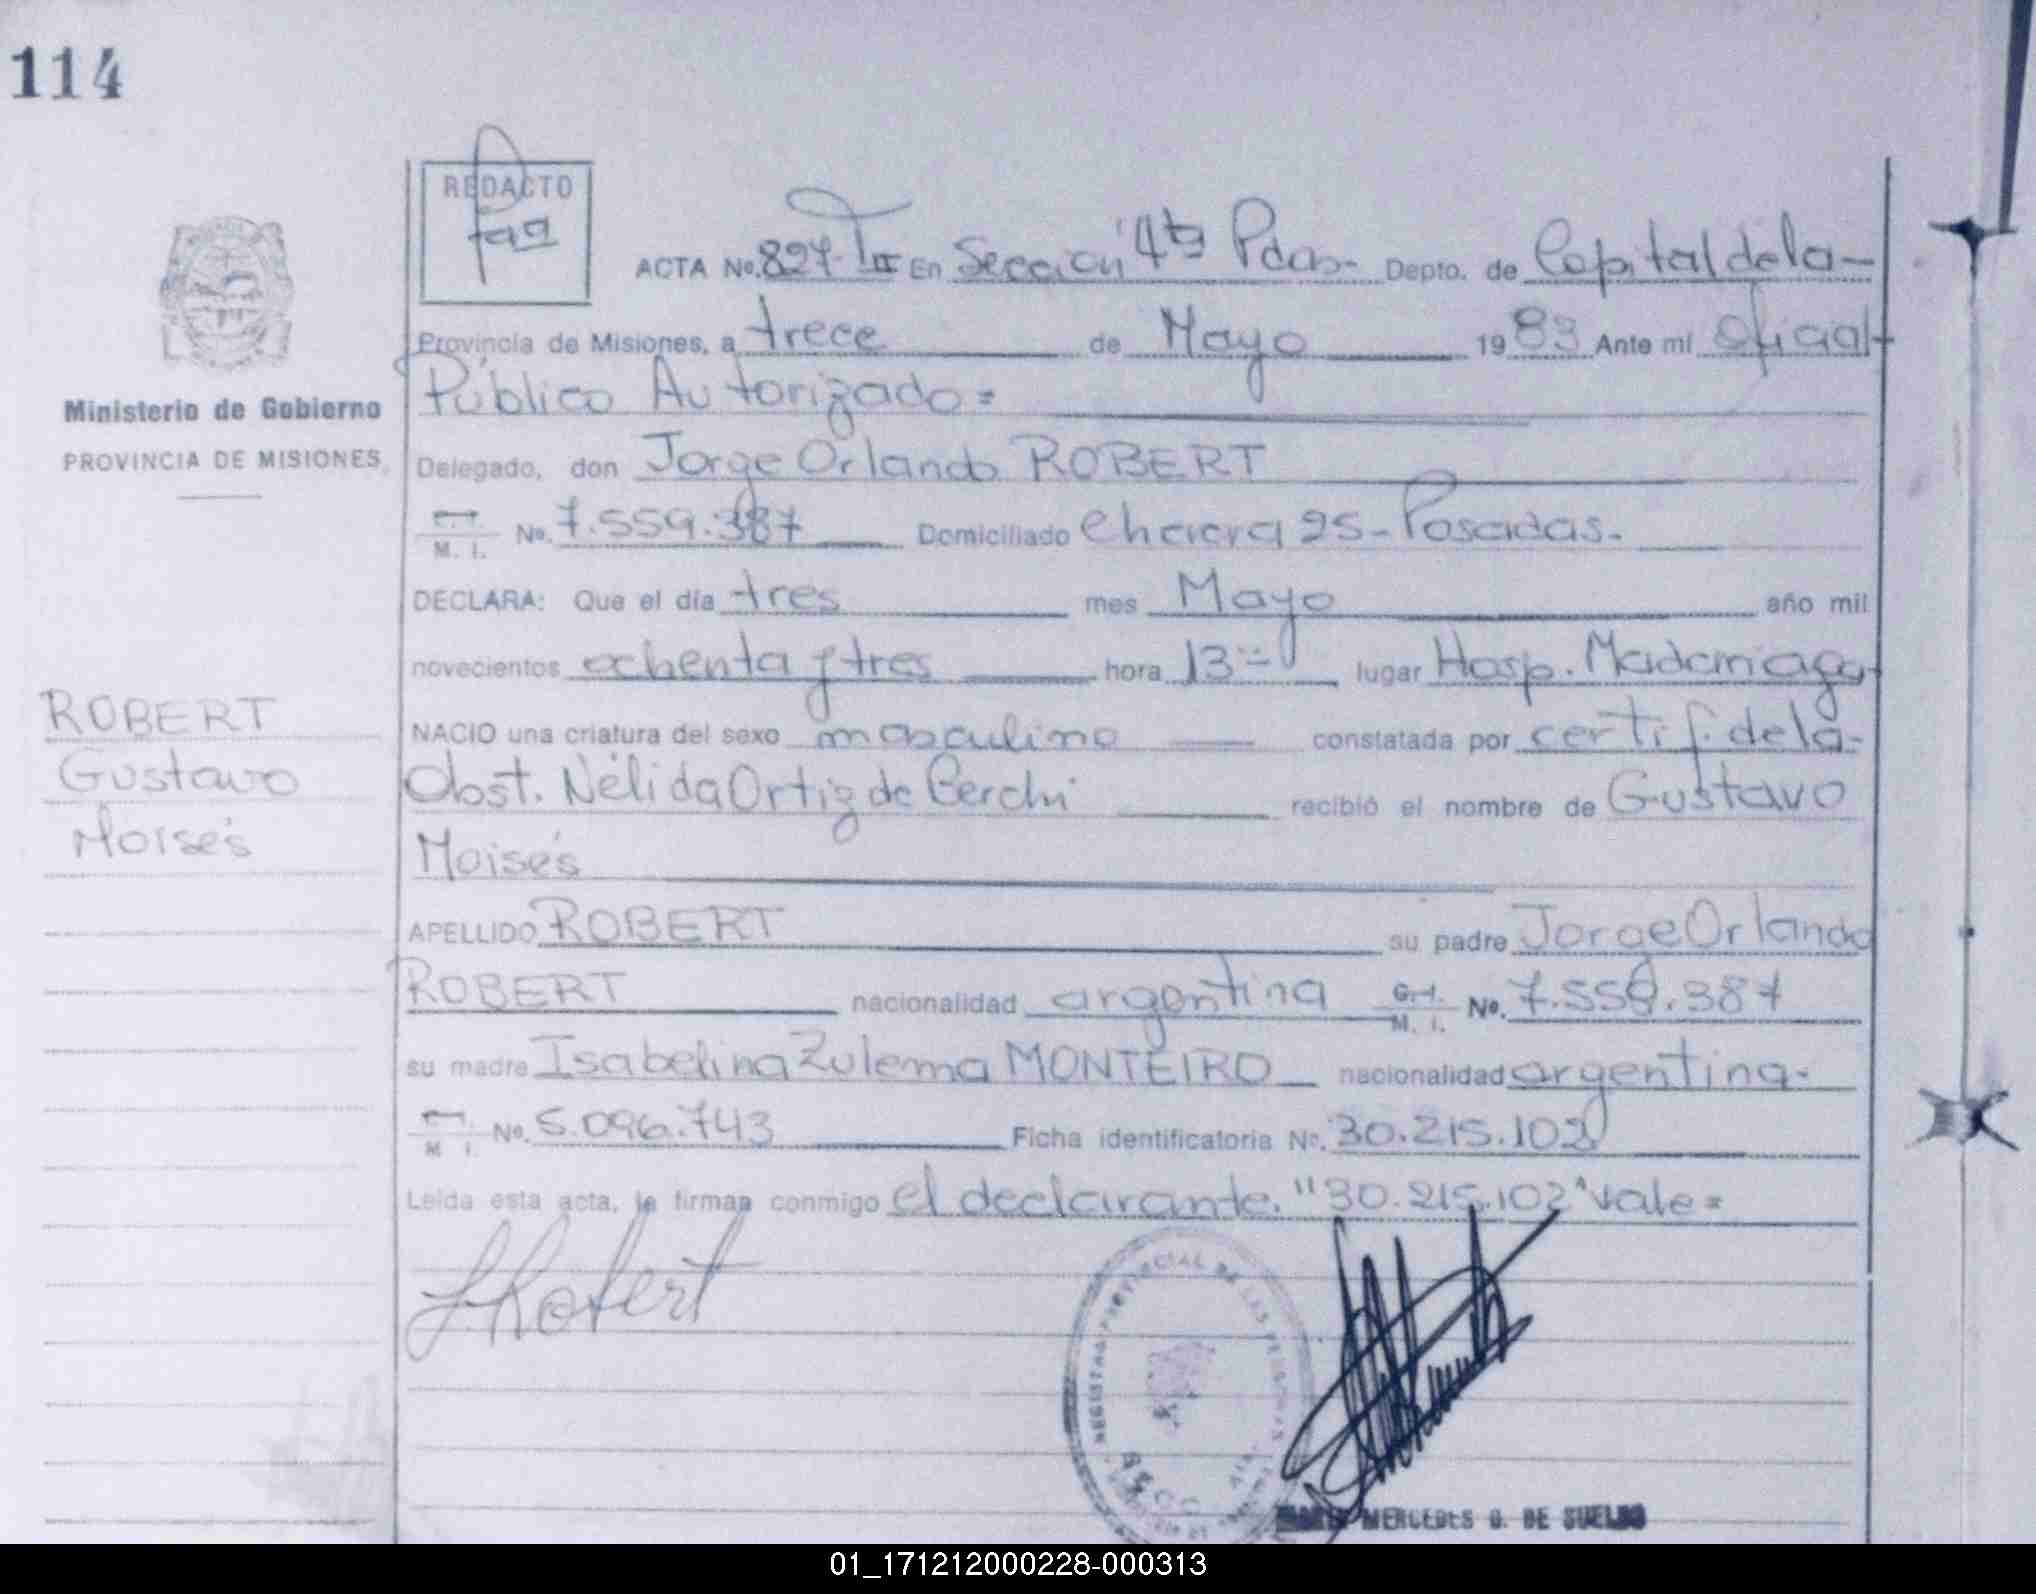 114
REDACTO
ACTA No. 827-T II En Sección 4ta Pdas- Depto. de Capital de la-
Provincia de Misiones, a trece de Mayo 1983 Ante mí Oficial
Público Autorizado=
Ministerio de Gobierno
PROVINCIA DE MISIONES
Delegado, don Jorge Orlando ROBERT
M. I. No. 7.559.387 Domiciliado Chacra 25- Posadas.
DECLARA: Que el día tres mes Mayo año mil
novecientos ochenta y tres hora 13= lugar Hosp. Madariaga
ROBERT
Gustavo
Moisés
NACIO una criatura del sexo masculino constatada por certif. de la-
Obst. Nélida Ortiz de Cerchi recibió el nombre de Gustavo
Moisés
APELLIDO ROBERT su padre Jorge Orlando
ROBERT nacionalidad argentina C.I. M. I. No. 7.559.387
su madre Isabelina Zulema MONTEIRO nacionalidad argentina.
M I. No. 5.096.743 Ficha identificatoria No. 30.215.102
Leída esta acta, la firman conmigo el declarante. "30.215.102" vale=
JRobert
REGISTRO PROVINCIAL DE LAS PERSONAS
SECC. 4ta
MERCEDES G. DE SUELDO
01_171212000228-000313